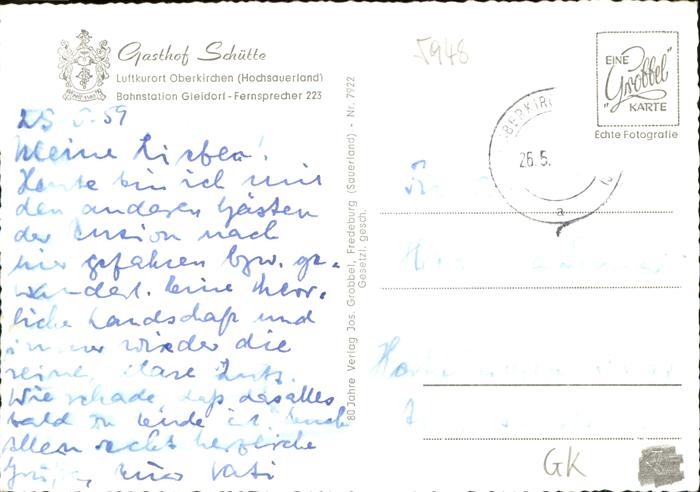 Gasthof Schütte
Luftkurort Oberkirchen (Hochsauerland)
Bahnstation Gleidorf - Fernsprecher 223
5948
EINE
"Grobbel"
KARTE
Echte Fotografie
26.5.
a
80 Jahre Verlag Jos. Grobbel, Fredeburg (Sauerland) - Nr. 7922
Gesetzl. gesch.
59
Meine Lieben!
Heute bin ich mit
den anderen Gästen
der Pension nach
hier gefahren bzw. ge-
wandert. Eine herr-
liche Landschaft und
immer wieder die
reine, klare Luft.
Wie schade, daß das alles
bald zu Ende ist. Euch
allen recht herzliche
Grüße, Euer Vati
GK